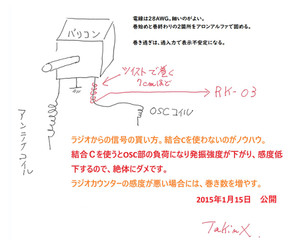 電線は28AWG。細いのがよい。
巻始めと巻終わりの2箇所をアロンアルファで固める。
巻き過ぎは、過入力で表示不安定になる。
バリコン
ツイストで巻く
7cmほど
RK-03
OSCコイル
アンテナコイル
ラジオからの信号の貰い方。結合cを使わないのがノウハウ。
結合Cを使うとOSC部の負荷になり発振強度が下がり、感度低
下するので、絶体にダメです。
ラジオカウンターの感度が悪い場合には、巻き数を増やす。
2015年1月15日 公開
TakinX.